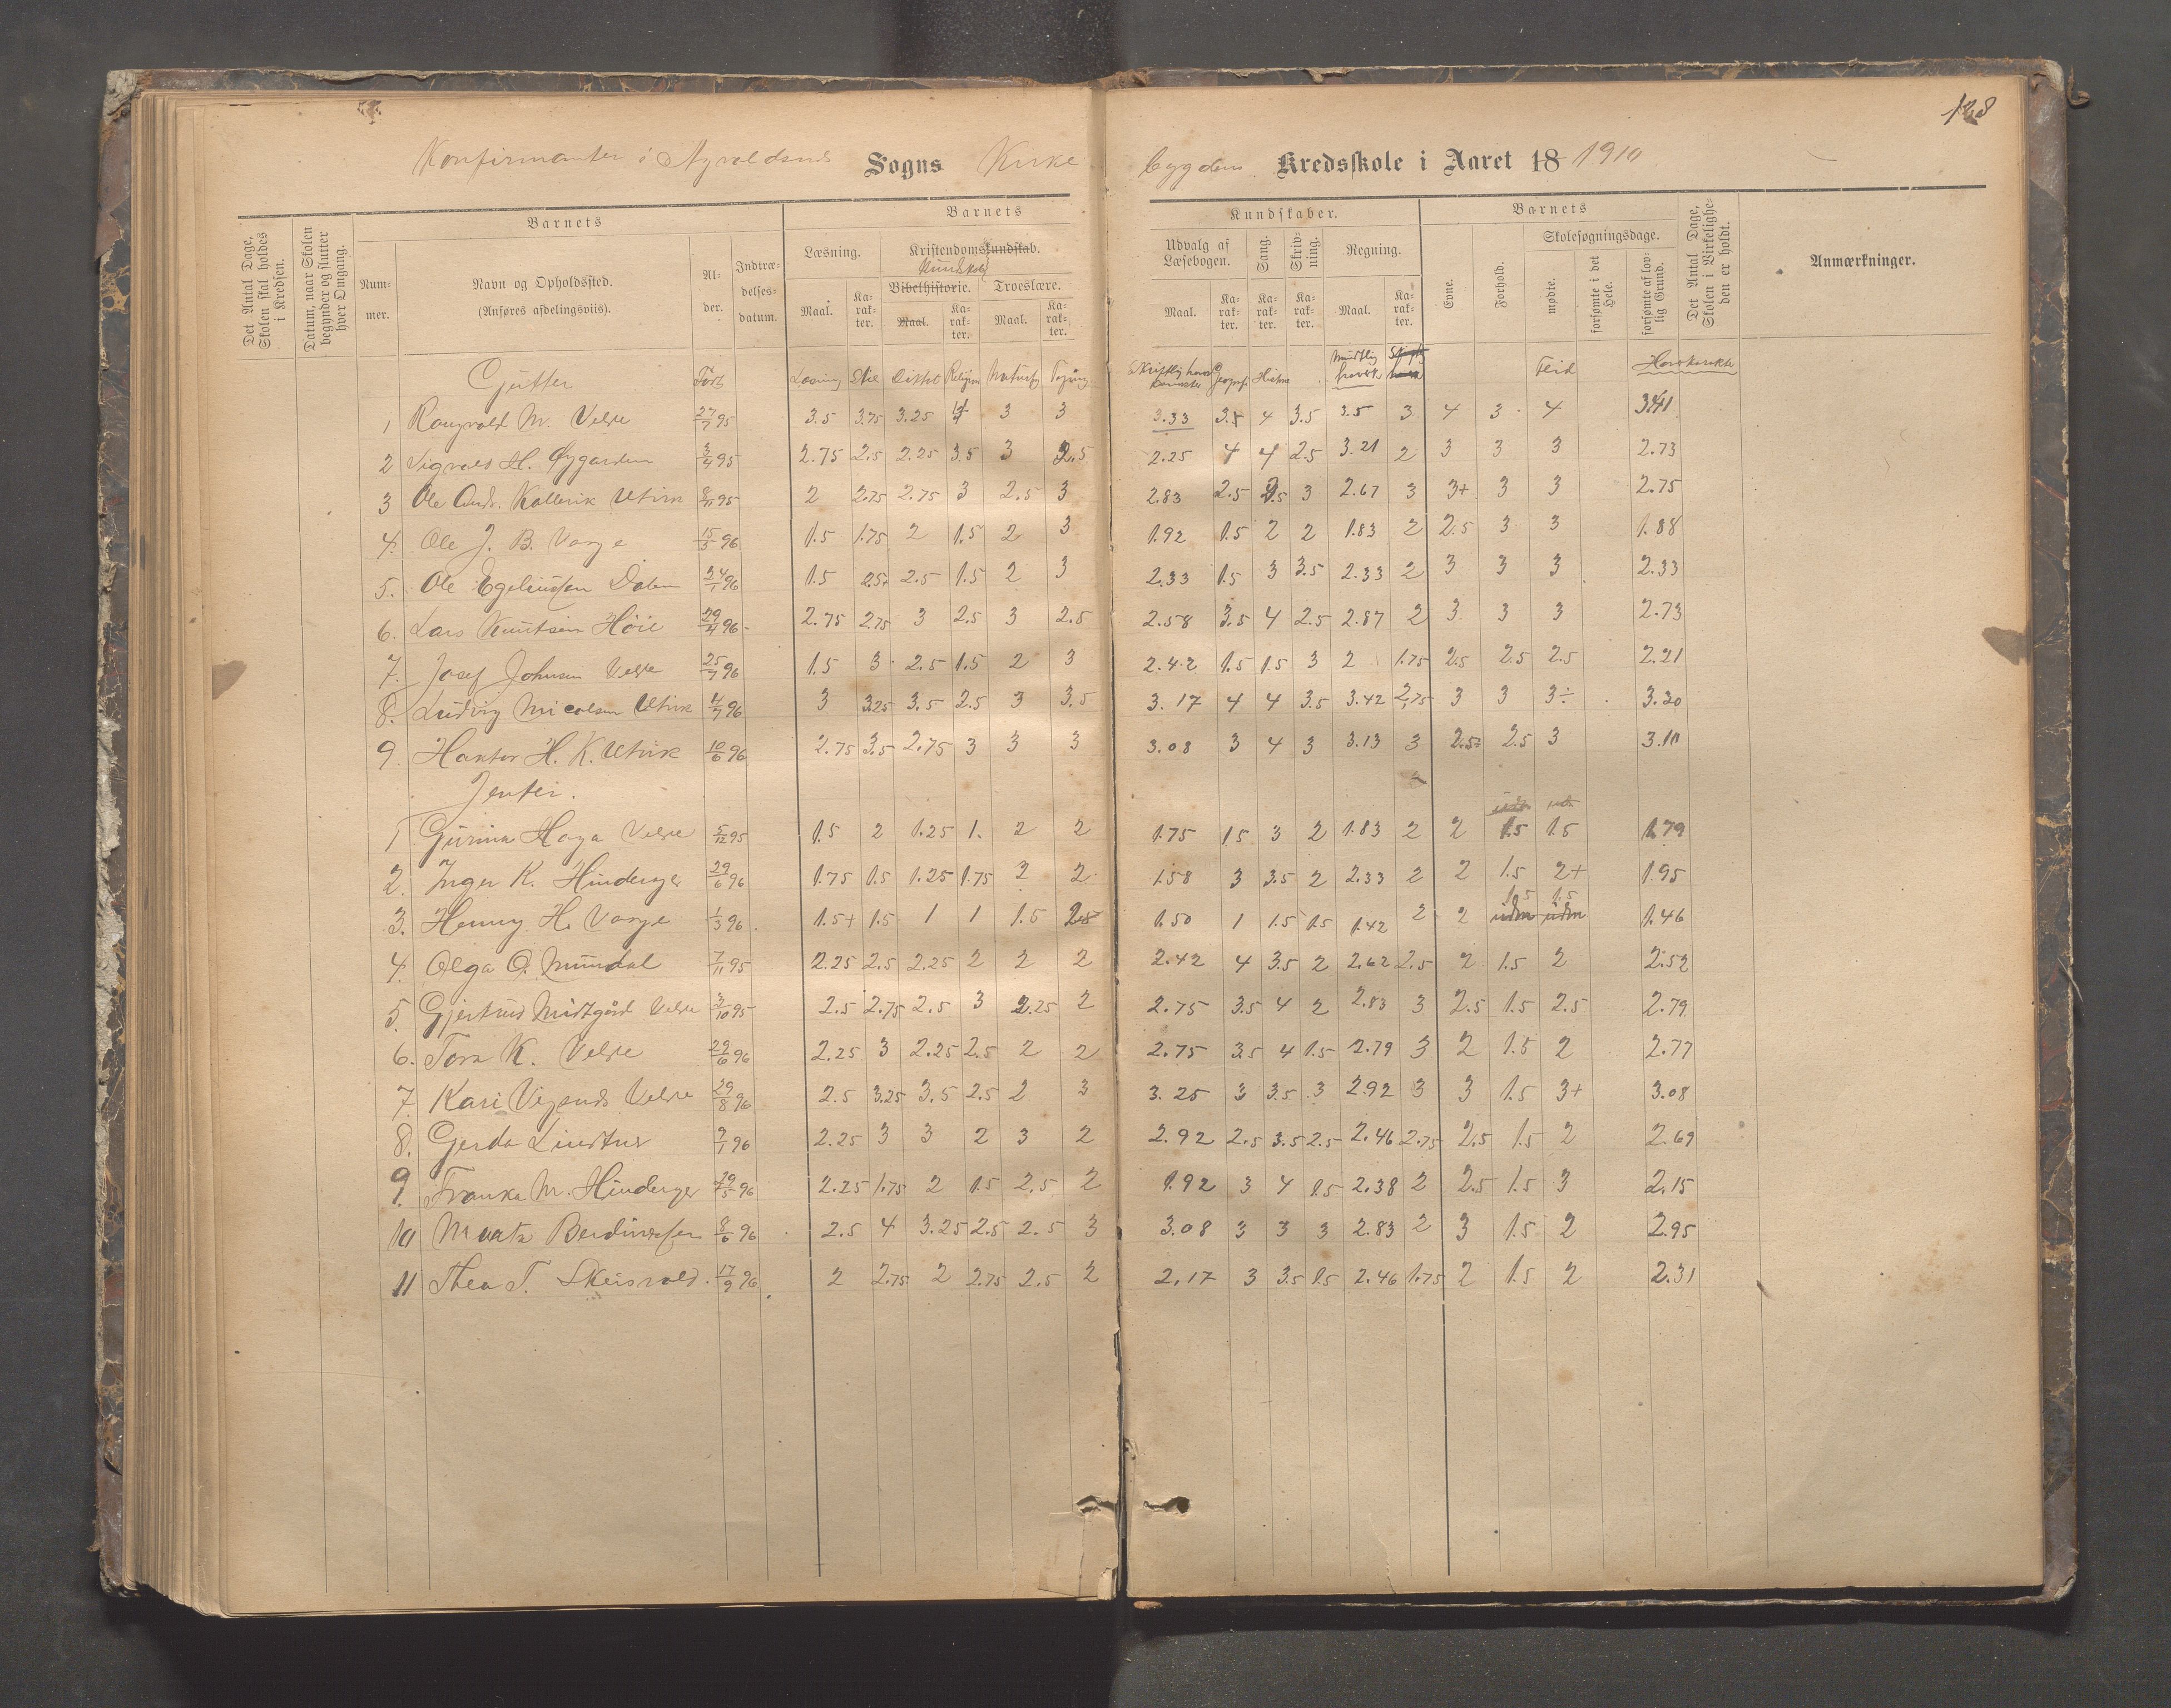 128
Konfirmanter i Avaldsnes Sogns Kirke bygdens Kredsskole i Aaret 18 1910
Det Antal Dage, Skolen skal holdes i Kredsen.
Datum, naar Skolen begynder og slutter hver Omgang.
Barnets
Barnets
Kundskaber.
Barnets
Det Antal Dage, Skolen i Virkeligheden er holdt.
Anmærkninger.
Nummer.
Navn og Opholdssted.
(Anføres afdelingsviis).
Alder.
Indtrædelsesdatum.
Læsning.
Kristendomskundskab.
Kundskab
Bibelhistorie.
Troeslære.
Udvalg af Læsebogen.
Sang.
Skrivning.
Regning.
Evne.
Forhold.
Skolesøgningsdage.
mødte.
forsømte i det Hele.
forsømte af lovlig Grund.
Maal. Karakter. Maal. Karakter. Maal. Karakter. Maal. Karakter. Karakter. Karakter. Maal. Karakter.
Gutter Født Læsning Stil Diktat Religion Naturf Tegning Skriftlig hovedkarakter Geografi Historie Mundtlig Flid Hovkarakter
1 Rangvald M. Velde 27/7 95 3.5 3.75 3.25 4 3 3 3.33 3.5 4 3.5 3.5 3 4 3 4 3.41
2 Sigvald H. Øygarden 3/4 95 2.75 2.5 2.25 3.5 3 2.5 2.25 4 4 2.5 3.21 2 3 3 3 2.73
3 Ole Andr. Kallevik Utvik 8/11 95 2 2.75 2.75 3 2.5 3 2.83 2.5 2.5 3 2.67 3 3+ 3 3 2.75
4. Ole J. B. Varge 15/3 96 1.5 1.75 2 1.5 2 3 1.92 1.5 2 2 1.83 2 2.5 3 3 1.88
5. Ole Egelandsen Dalen 24/1 96 1.5 2.5 2.5 1.5 2 3 2.33 1.5 3 3.5 2.33 2 3 3 3 2.33
6. Lars Knutsen Høie 29/4 96 2.75 2.75 3 2.5 3 2.5 2.58 3.5 4 2.5 2.87 2 3 3 3 2.73
7. Josef Johnsen Velde 25/7 96 1.5 3 2.5 1.5 2 3 2.42 1.5 1.5 3 2 1.75 2.5 2.5 2.5 2.21
8. Ludvig Micalsen Utvik 4/7 96 3 3.25 3.5 2.5 3 3.5 3.17 4 4 3.5 3.42 2.75 3 3 3÷ 3.30
9. Haktor H. K. Utvik 10/6 96 2.75 3.5 2.75 3 3 3 3.08 3 4 3 3.13 3 2.5 2.5 3 3.10
Jenter.
1 Gurina Haga Velde 5/12 95 1.5 2 1.25 1. 2 2 1.75 1.5 3 2 1.83 2 2 1.5 1.5 1.79
2. Inger K. Hinderager 29/6 96 1.75 1.5 1.25 1.75 2 2 1.58 3 3.5 2 2.33 2 2 1.5 2+ 1.95
3. Henny H. Varge 1/3 96 1.5+ 1.5 1 1 1.5 2.5 1.50 1 1.5 1.5 1.42 2 2 uden 1.5 uden 1.5 1.46
4. Olga O. Mundal 7/11 95 2.25 2.5 2.25 2 2 2 2.42 4 3.5 2 2.62 2.5 2 1.5 2 2.52
5. Gjertrud Midtgård Velde 3/10 95 2.5 2.75 2.5 3 2.25 2 2.75 3.5 4 2 2.83 3 2.5 1.5 2.5 2.79
6. Tora K. Velde 29/6 96 2.25 3 2.25 2.5 2 2 2.75 3.5 4 1.5 2.79 3 2 1.5 2 2.77
7. Kari Vigands Velde 29/8 96 2.5 3.25 3.5 2.5 2 3 3.25 3 3.5 3 2.92 3 3 1.5 3+ 3.08
8. Gerda Lindtner 9/1 96 2.25 3 3 2 3 2 2.92 2.5 3.5 2.5 2.46 2.75 2.5 1.5 2 2.69
9. Franka M. Hinderager 29/5 96 2.25 1.75 2 1.5 2.5 2 1.92 3 4 1.5 2.38 2 2.5 1.5 3 2.15
10 Marta Berdinessen 8/6 96 2.5 4 3.25 2.5 2.5 3 3.08 3 3 3 2.83 2 3 1.5 2 2.95
11 Thea T. Skeisvold 17/9 96 2 2.75 2 2.75 2.5 2 2.17 3 3.5 1.5 2.46 1.75 2 1.5 2 2.31